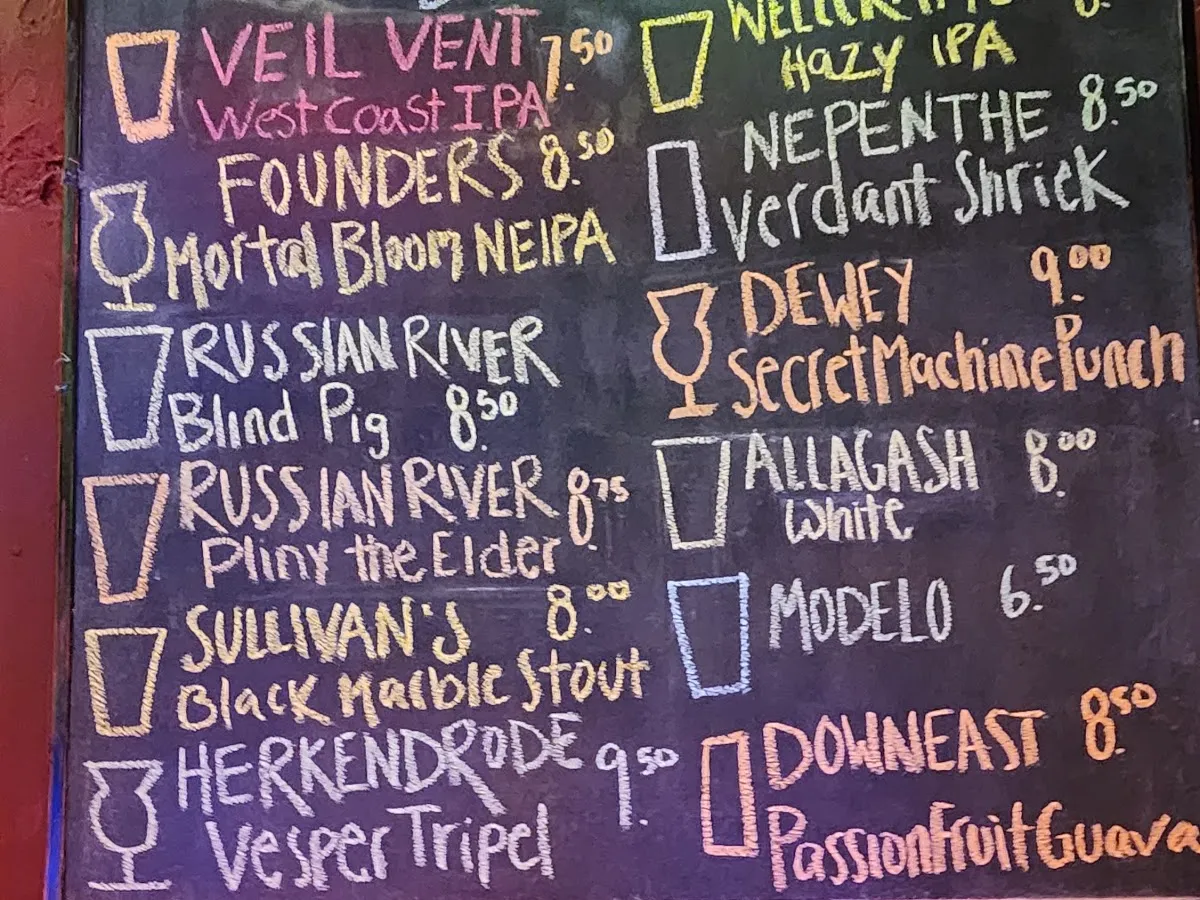 VEIL VENT 7.50
West Coast IPA
FOUNDERS 8.50
Mortal Bloom NEIPA
RUSSIAN RIVER
Blind Pig 8.50
RUSSIAN RIVER 8.75
Pliny the Elder
SULLIVAN'S 8.00
Black Marble Stout
HERKENDRODE 9.50
Vesper Tripel
Hazy IPA
NEPENTHE 8.50
Verdant Shriek
DEWEY 9.00
Secret Machine Punch
ALLAGASH 8.00
White
MODELO 6.50
DOWNEAST 8.50
Passionfruit Guava